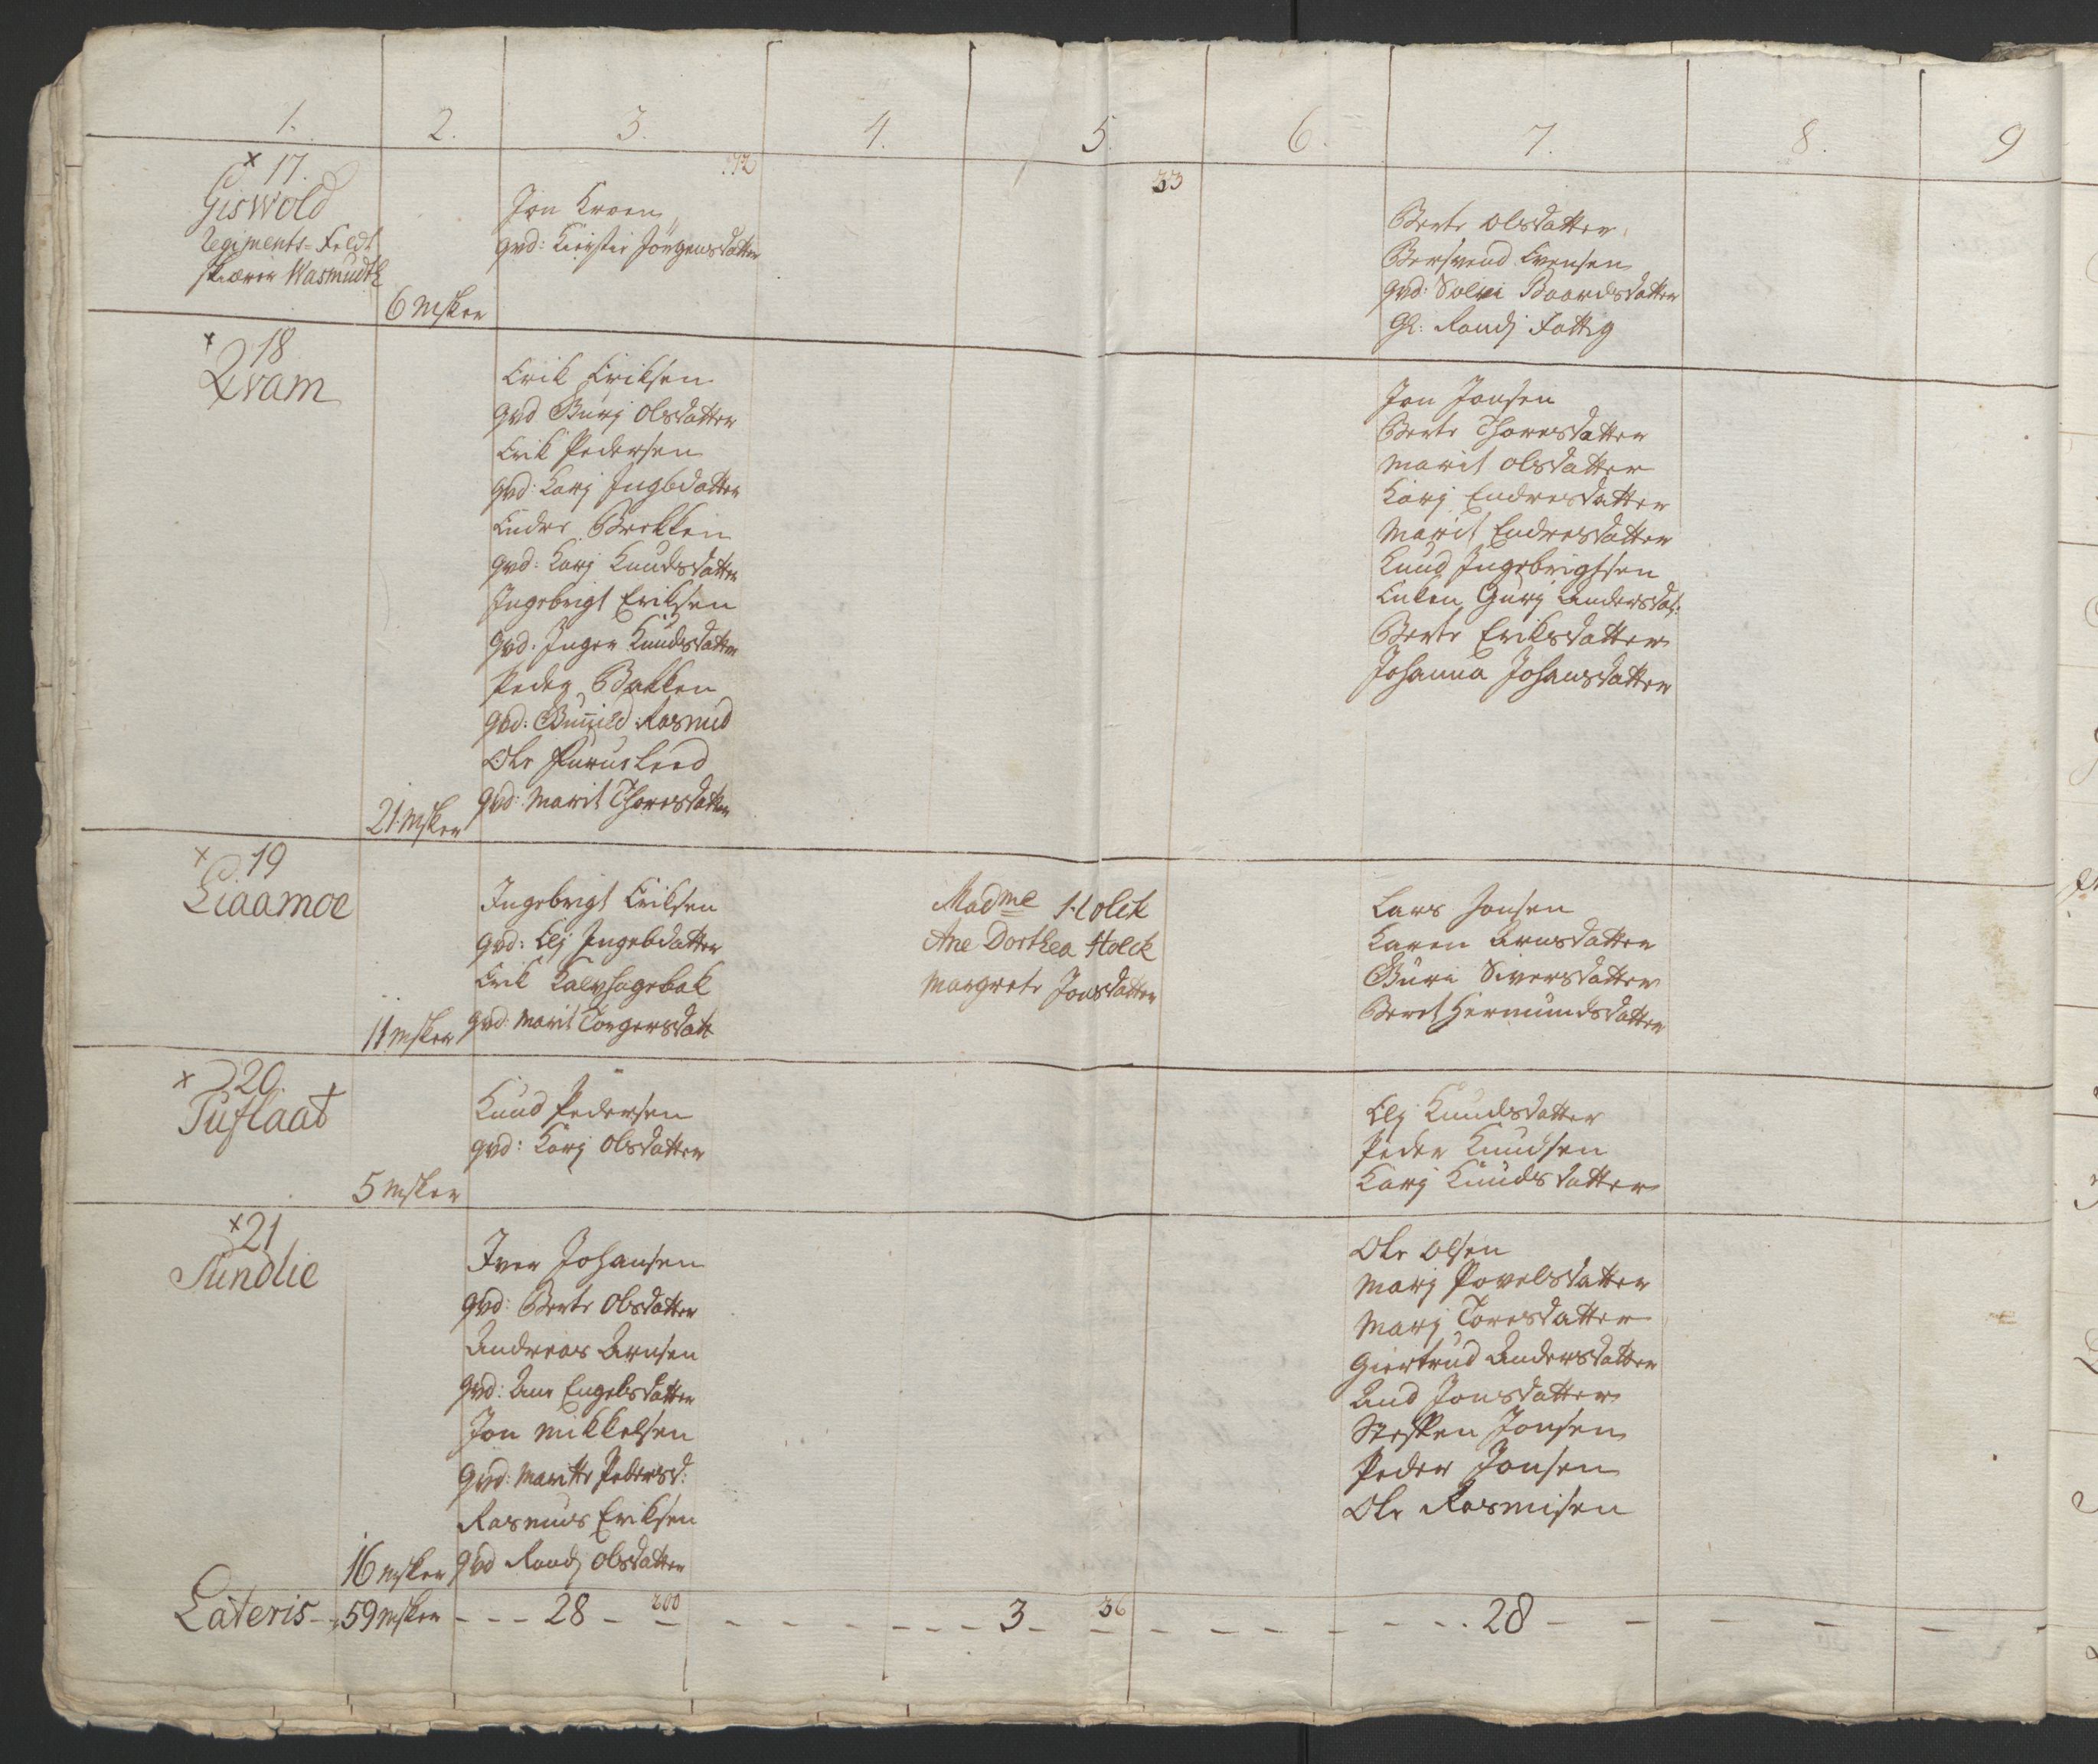 1. 2. 3. 4. 5. 6. 7. 8. 9
x 17.
Giswold
Regiments-Feldt
skiærer Wasmudth
6 Msker
172
Jon Kroen
qvd: Kirstie Jörgensdatter
33
Berte Olsdatter
Berswend Evensen
qvd: Solvi Baardsdatter
Gl: Randj Fattig
x 18
Qvam
21 Msker
Erik Eriksen
qvd Gurj Olsdatter
Erik Pedersen
qvd: Karj Ingbdatter
Endre Brekken
qvd: Karj Knudsdatter
Ingebrigt Eriksen
qvd. Inger Knudsdatter
Peder Bakken
qvd: Gunild Rasmusd
Ole
qvd: Marit Thoresdatter
Jon Jonsen
Berte Thoresdatter
Marit Olsdatter
Karj Endresdatter
Marit Endresdatter
Knud Ingebrigtsen
Enken Gurj Andersdat:
Berte Eriksdatter
Johanna Johansdatter
x 19
Liaamoe
11 Msker
Ingebrigt Eriksen
qvd: Elj Ingebdatter
Erik Kalvhagebak
qvd: Marit Torgersdatt
Madme Holck
Ane Dorthea Holck
Margrete Jonsdatter
Lars Jonsen
Karen Arnsdatter
Guri Siversdatter
Beret Hermundsdatter
x 20.
Tuflaat
5 Msker
Knud Pedersen
qvd: Karj Olsdatter
Elj Knudsdatter
Peder Knudsen
Karj Knudsdatter
x 21
Sundlie
16 Msker
Iver Johansen
qvd: Berte Olsdatter
Andreas Arnsen
qvd: Ane Engebsdatter
Jon Mikkelsen
qvd: Maritte Pedersd:
Rasmus Eriksen
qvd Randj Olsdatter
Ole Olsen
Marj Povelsdatter
Marj Toresdatter
Giertrud Andersdatter
And Jonsdatter
Steffen Jonsen
Peder Jonsen
Ole Rasmisen
Lateris - 59 Msker - - - 28 - 200 - - - 3 - 36 - - - 28 - - -